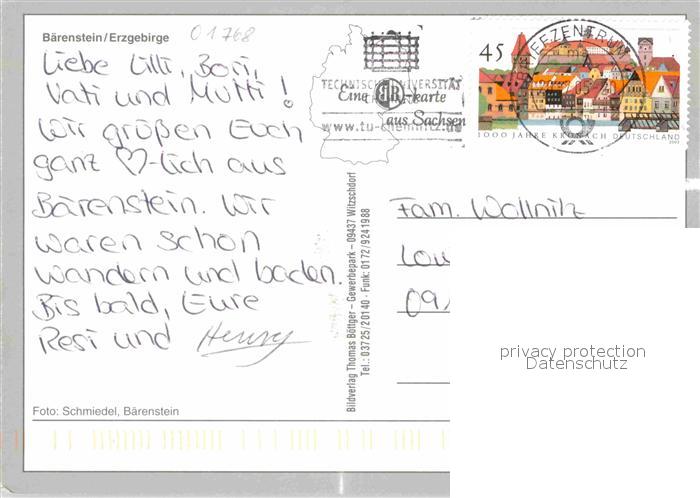 Bärenstein/Erzgebirge
01768
Liebe Lilli, Bori,
Vati und Mutti!
Wir grüßen Euch
ganz ♡-lich aus
Bärenstein. Wir
waren schon
wandern und baden.
Bis bald, Eure
Resi und Henry
Foto: Schmiedel, Bärenstein
Bildverlag Thomas Böttger – Gewerbepark – 09437 Witzschdorf
Tel.: 03725/20140 · Funk: 0172/9241988
TECHNISCHE UNIVERSITÄT
Eine BB-karte
aus Sachsen
www.tu-chemnitz.de
45
1000 JAHRE KRONACH DEUTSCHLAND
2003
Fam. Wollnitz
09
privacy protection
Datenschutz